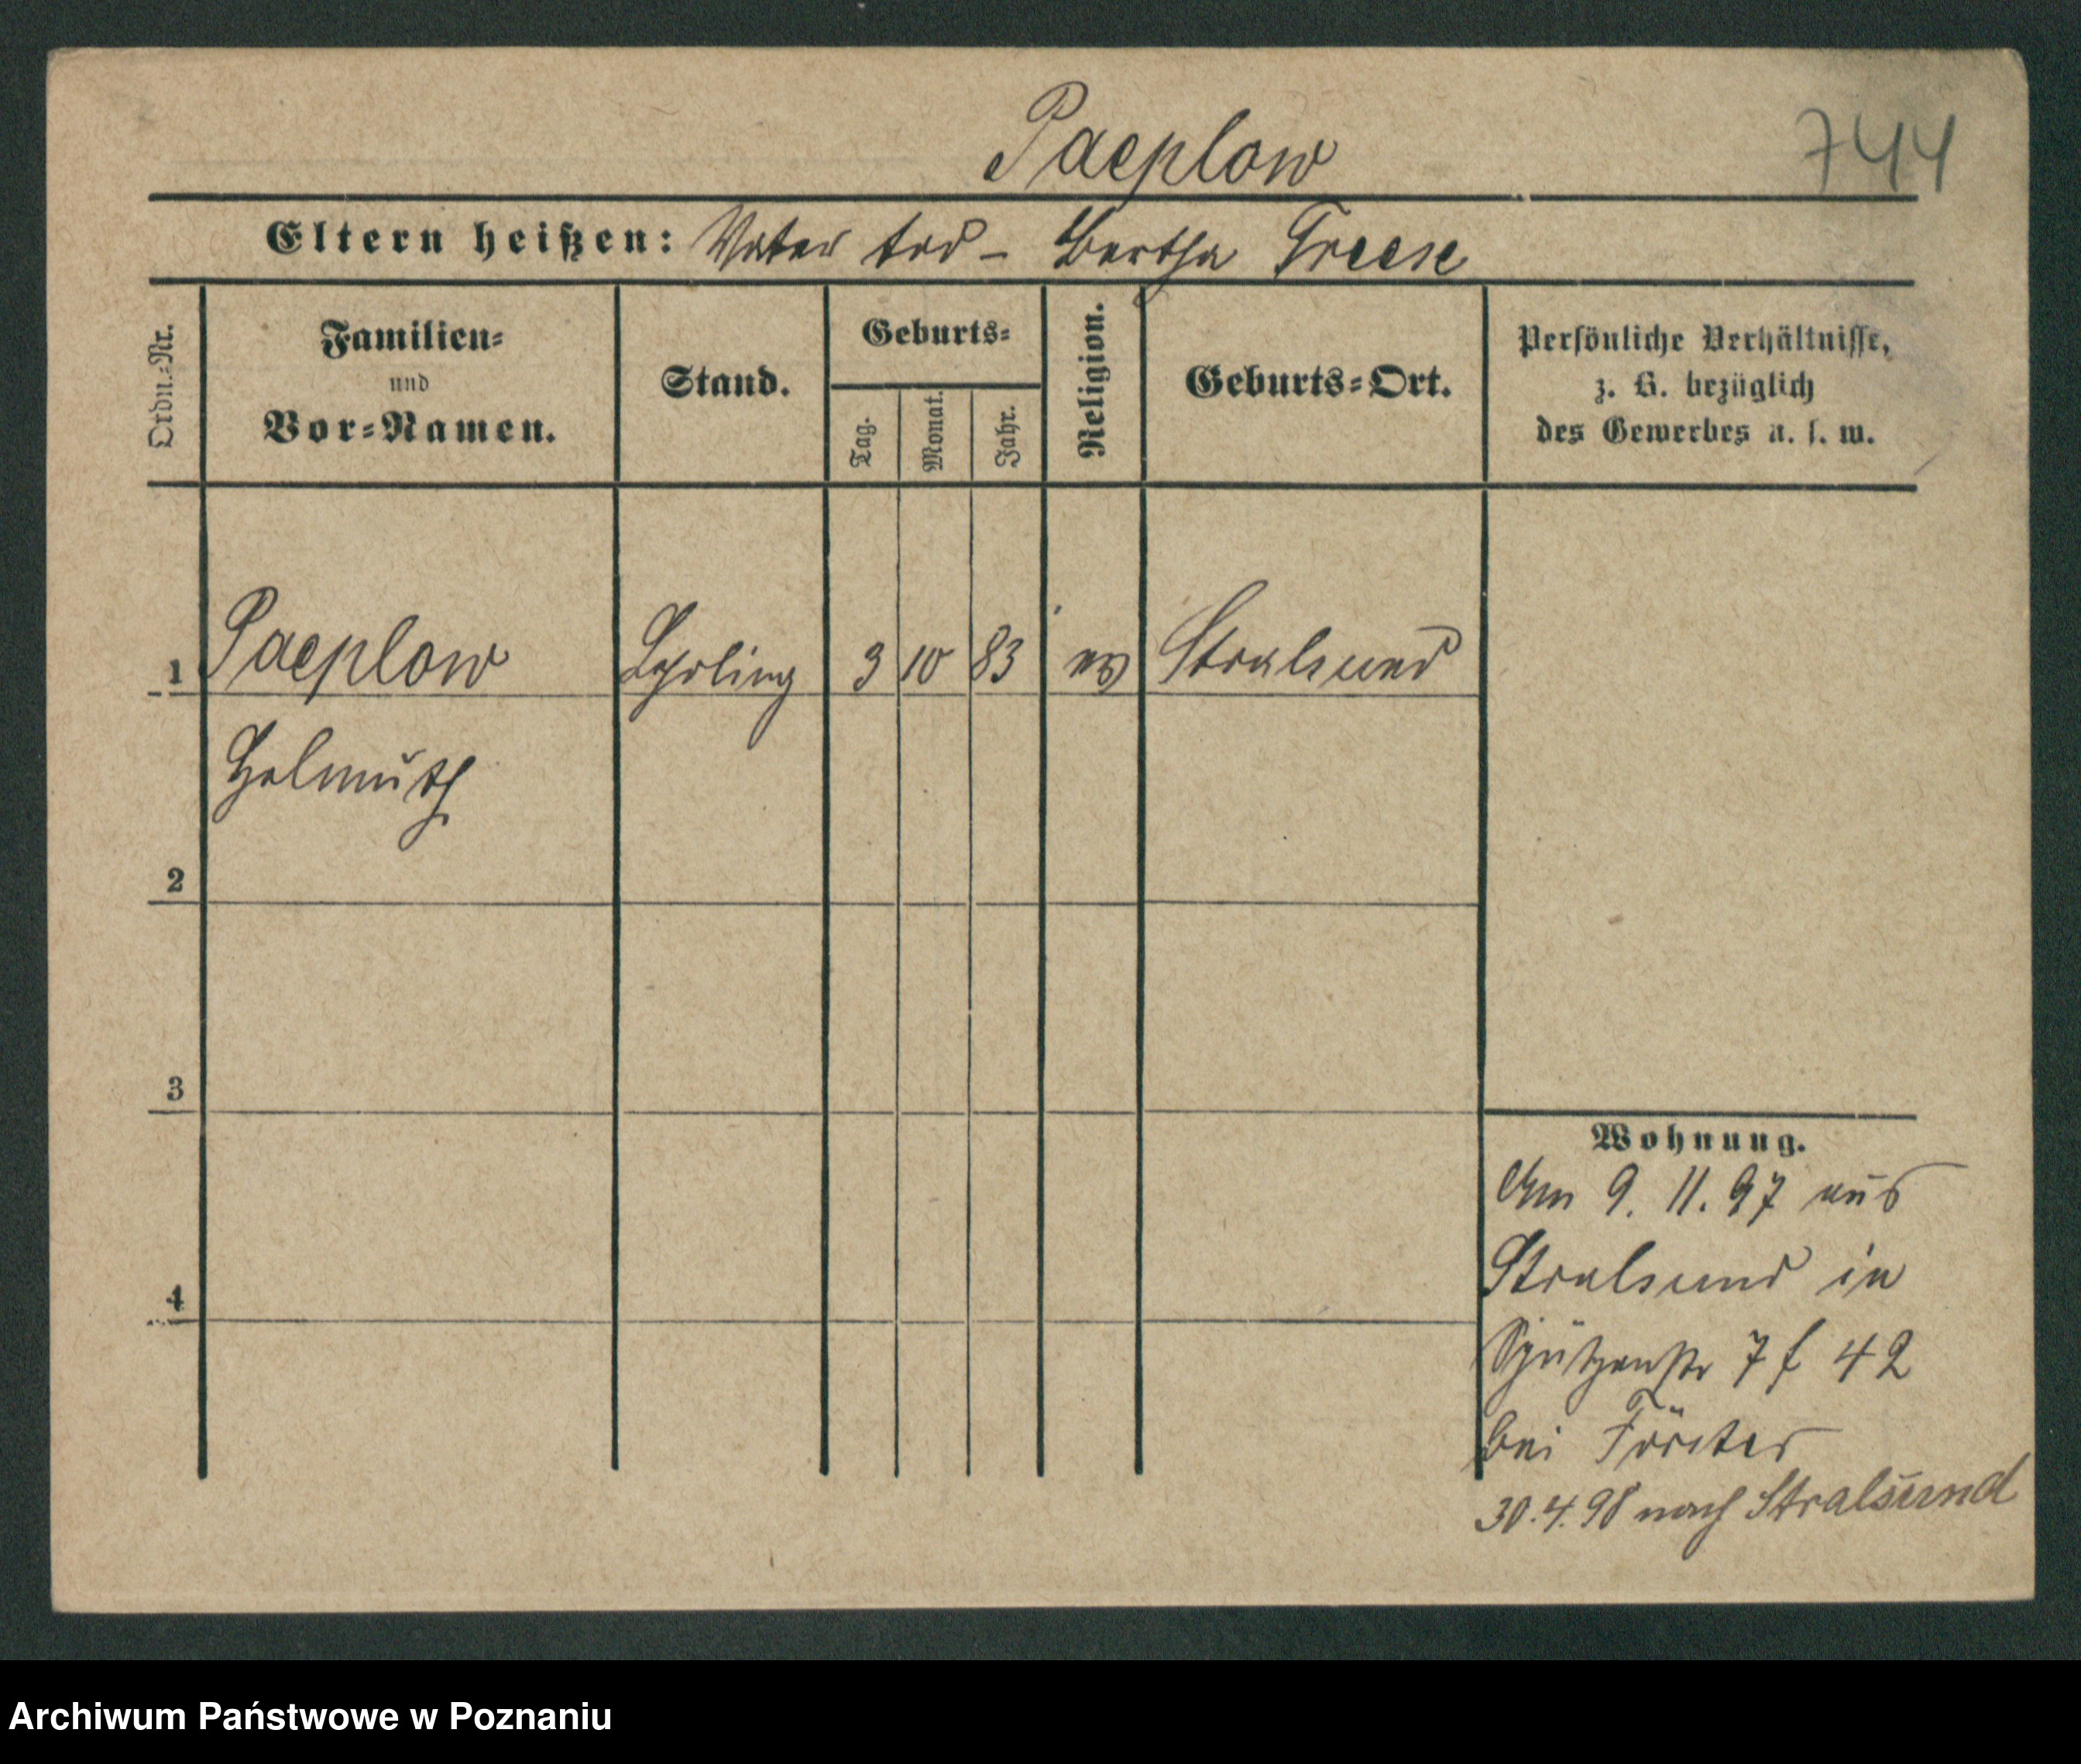 Paeplow
744
Eltern heißen: Vater tod - Bertha Freese
Ordn.-Nr.
Familien-
und
Vor-Namen.
Stand.
Geburts-
Tag.
Monat.
Jahr.
Religion.
Geburts-Ort.
Persönliche Verhältnisse,
z. B. bezüglich
des Gewerbes u. s. w.
1 Paeplow Lehrling 3 10 83 ev Stralsund
Helmuth
2
3
4
Wohnung.
Am 9. 11. 97 aus
Stralsund in
Schützenstr 7 f 42
bei Förster
30.4.98 nach Stralsund
Archiwum Państwowe w Poznaniu